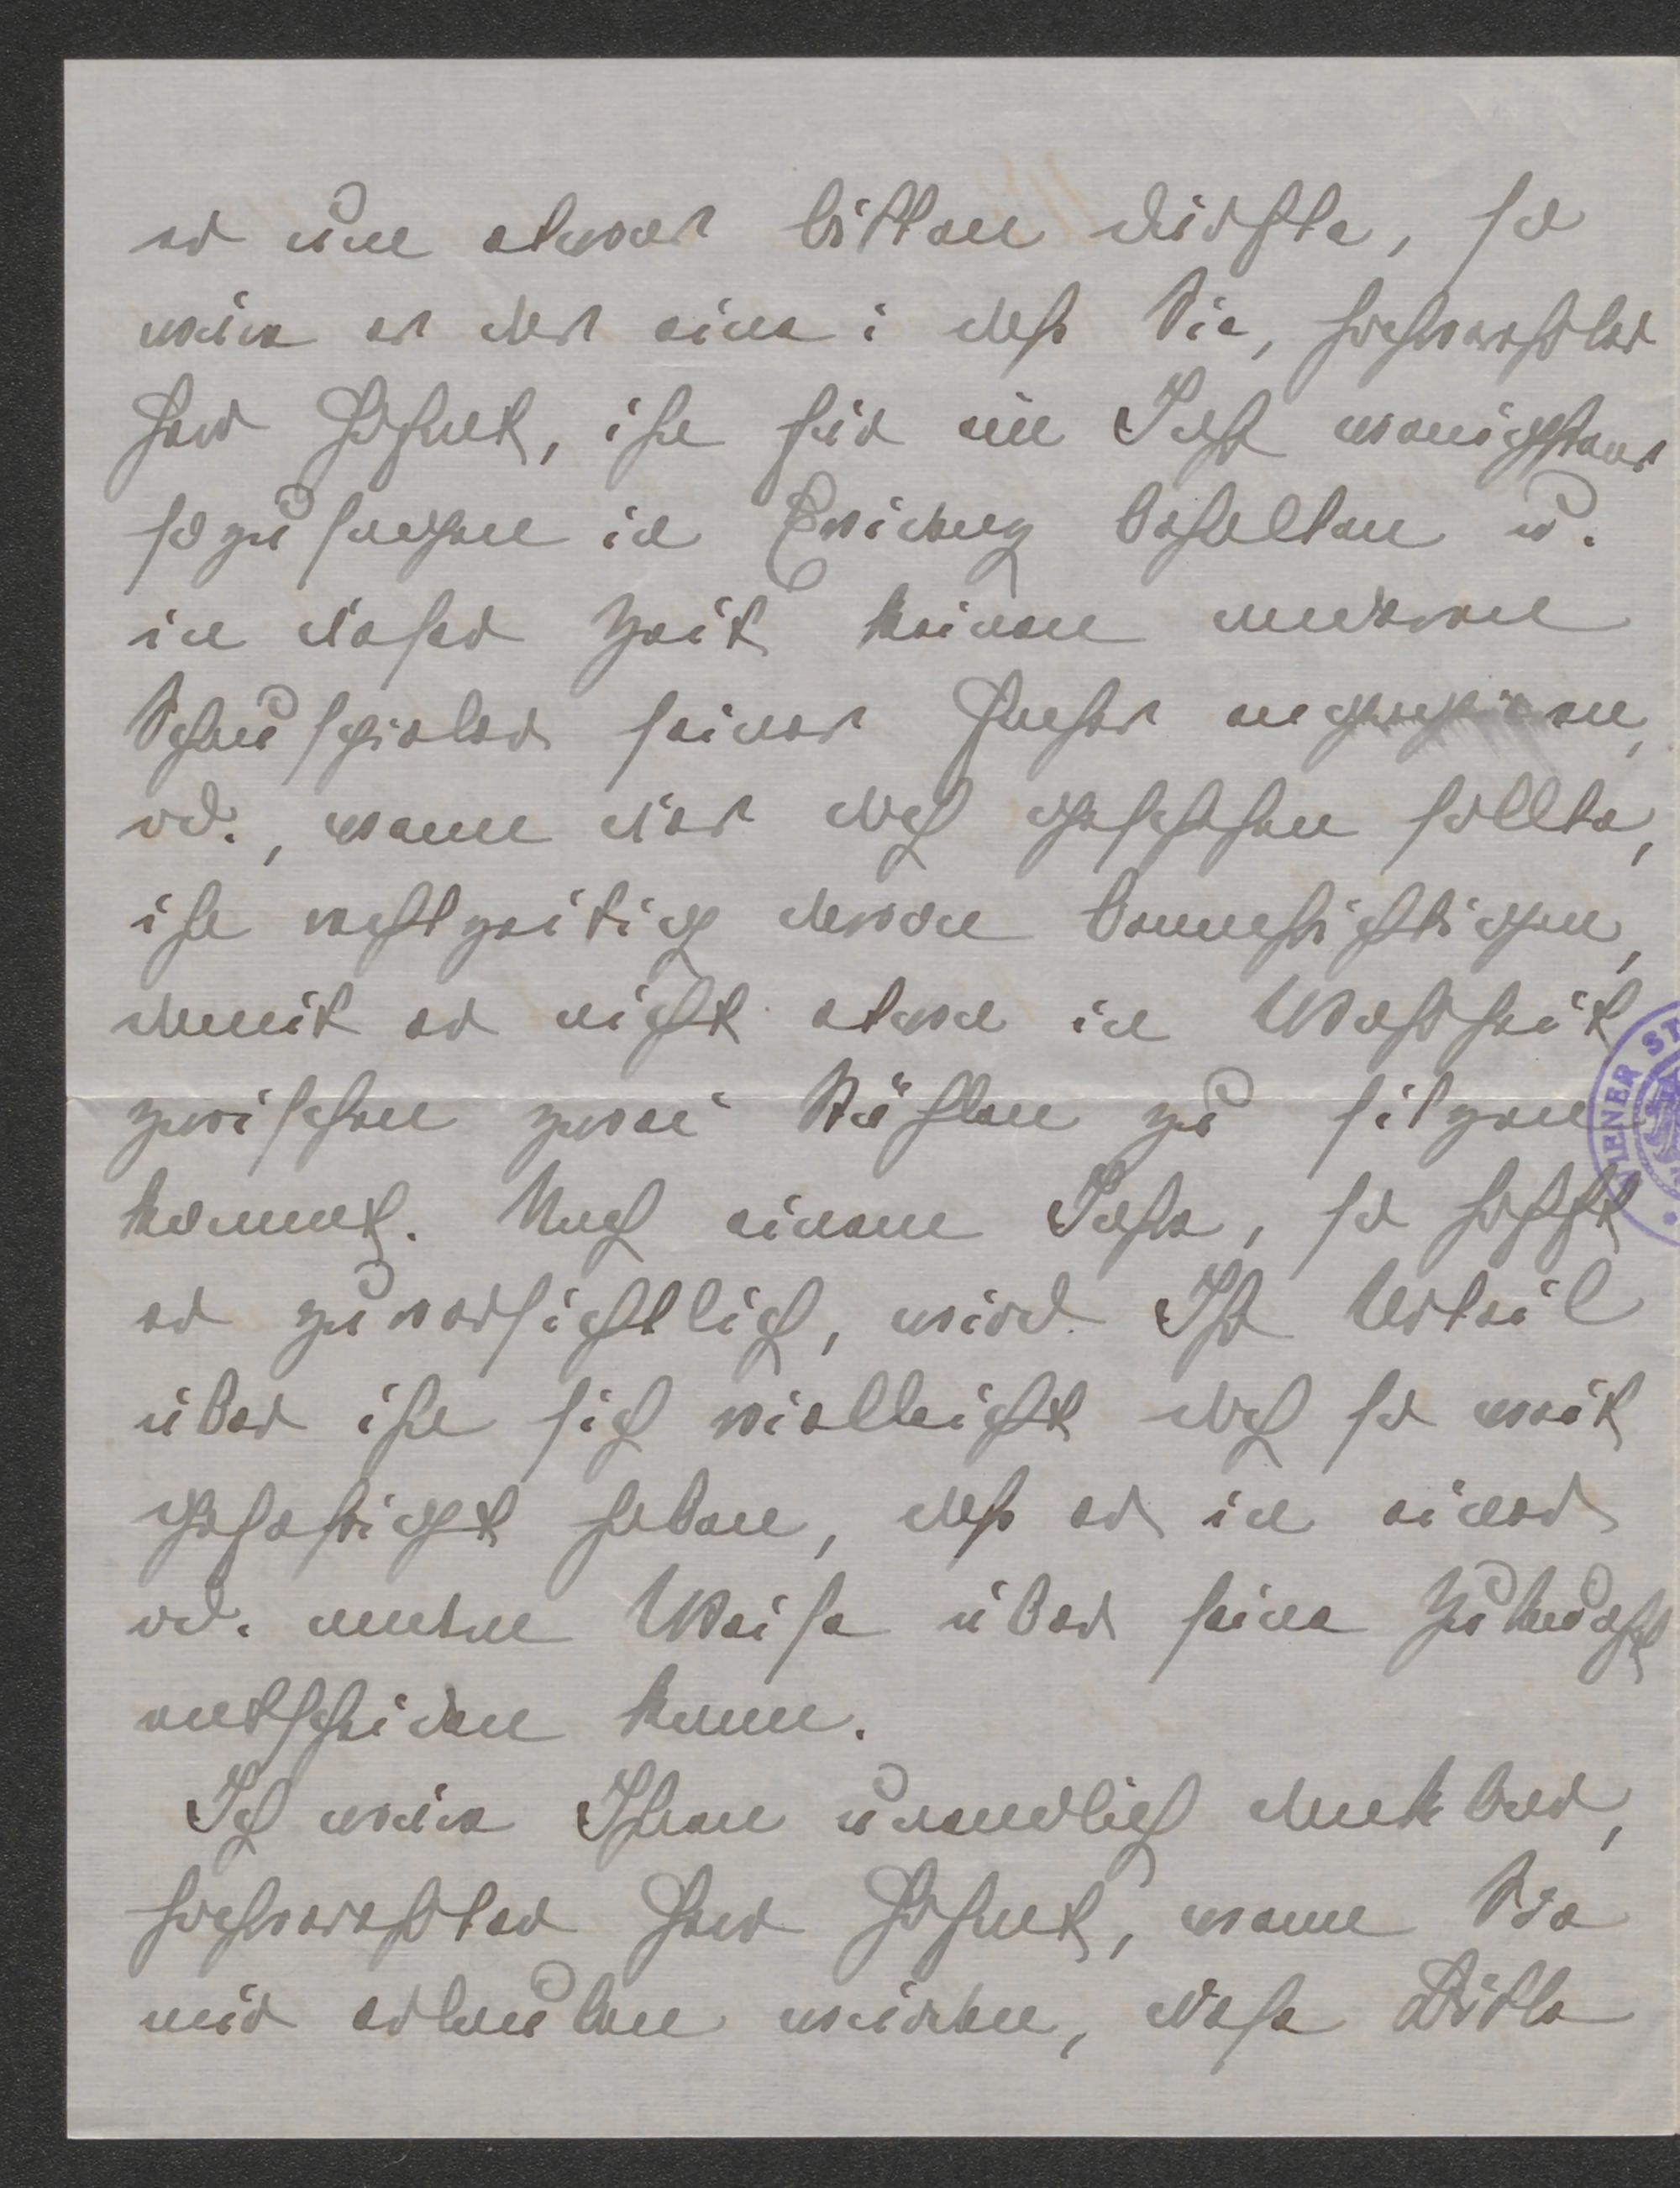 er um etwas bitten dürfte, so
wäre es das eine: daß Sie, hochverehrter
Herr Hofrat, ihn für ein Jahr wenigstens
sozusagen in Evidenz behalten u.
in dieser Zeit keinen anderen
Schauspieler seines Faches engagieren,
od., wenn dies doch geschehen sollte,
ihn rechtzeitig davon benachrichtigen,
damit er nicht etwa in Wahrheit
zwischen zwei Stühlen zu sitzen
kommt. Nach einem Jahre, so hofft
er zuversichtlich, wird Ihr Urteil
über ihn sich vielleicht doch so weit
gefestigt haben, daß er in einer
od. andern Weise über seine Zukunft
entscheiden kann.
Ich wäre Ihnen unendlich dankbar,
hochverehrter Herr Hofrat, wenn Sie
mir erlauben würden, diese Bitte
WIENER ST